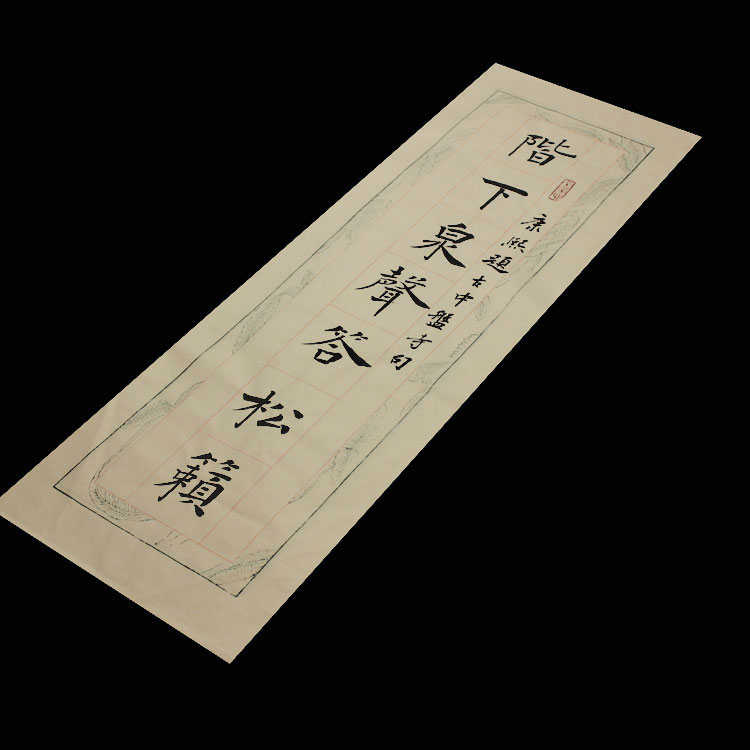 階下泉聲答松籟
康熙題古中盤寺句